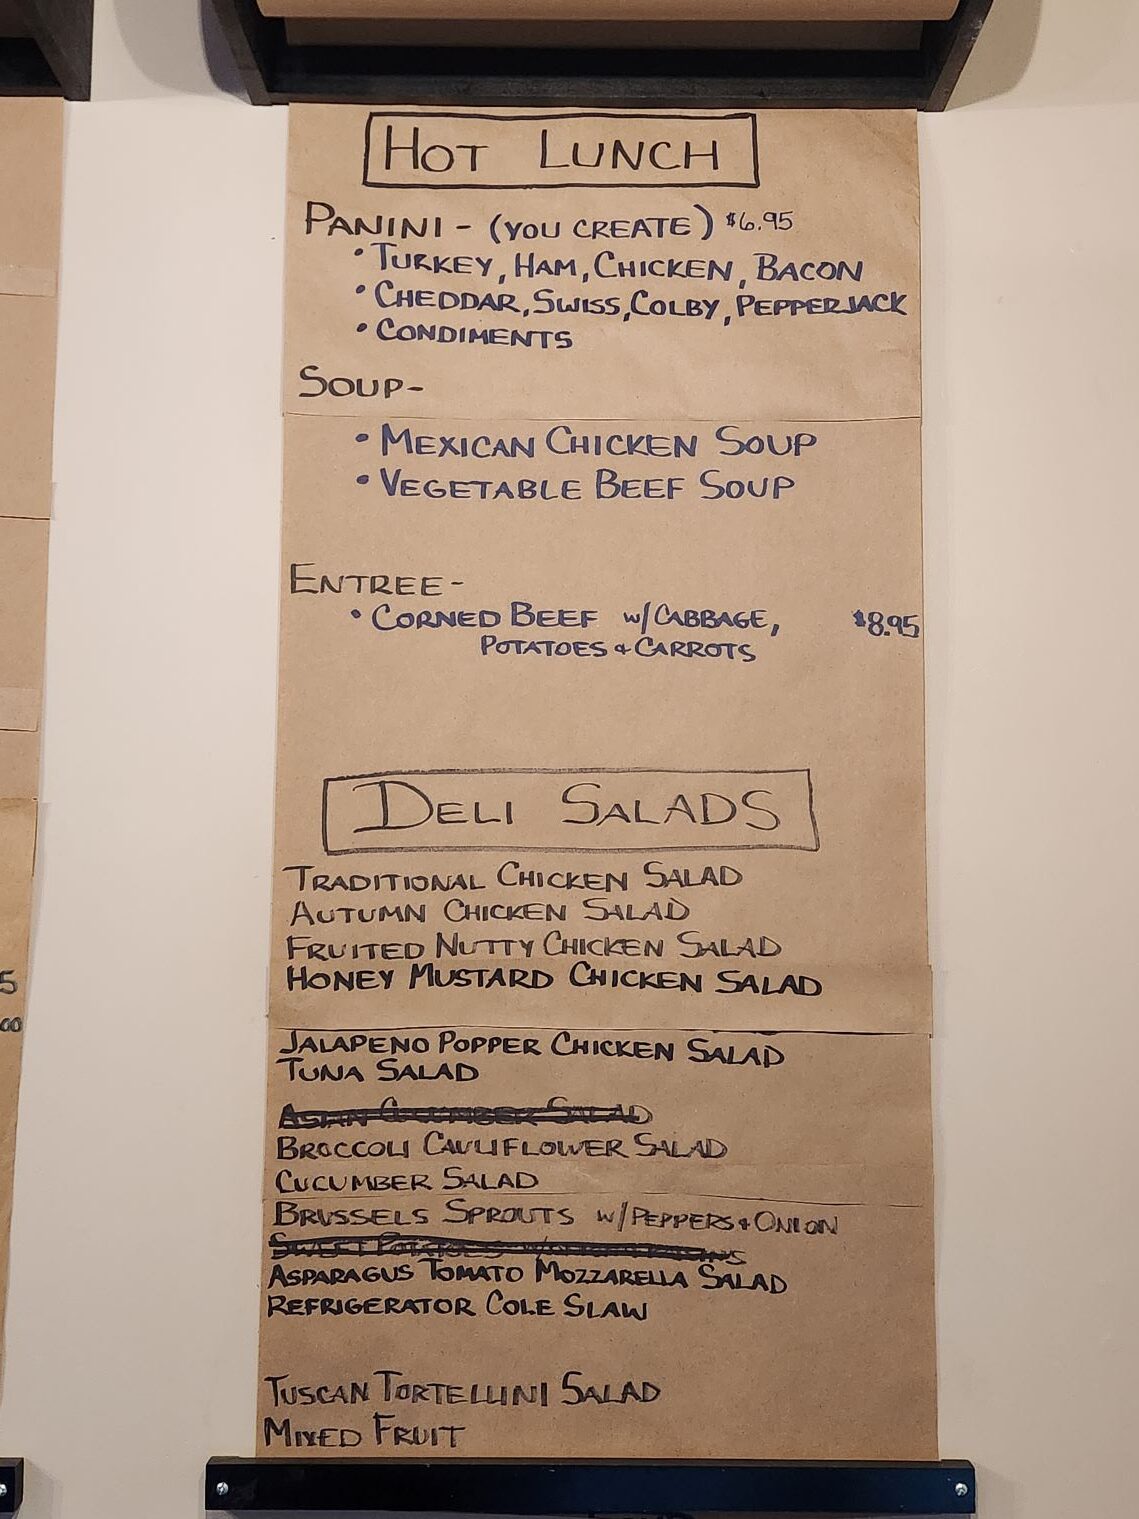 HOT LUNCH
PANINI - (YOU CREATE) $6.95
• TURKEY, HAM, CHICKEN, BACON
• CHEDDAR, SWISS, COLBY, PEPPERJACK
• CONDIMENTS
SOUP-
• MEXICAN CHICKEN SOUP
• VEGETABLE BEEF SOUP
ENTREE-
• CORNED BEEF w/CABBAGE, $8.95
POTATOES + CARROTS
DELI SALADS
TRADITIONAL CHICKEN SALAD
AUTUMN CHICKEN SALAD
FRUITED NUTTY CHICKEN SALAD
HONEY MUSTARD CHICKEN SALAD
JALAPENO POPPER CHICKEN SALAD
TUNA SALAD
ASIAN CUCUMBER SALAD
BROCCOLI CAULIFLOWER SALAD
CUCUMBER SALAD
BRUSSELS SPROUTS w/PEPPERS + ONION
SWEET POTATOES
ASPARAGUS TOMATO MOZZARELLA SALAD
REFRIGERATOR COLE SLAW
TUSCAN TORTELLINI SALAD
MIXED FRUIT
5
00